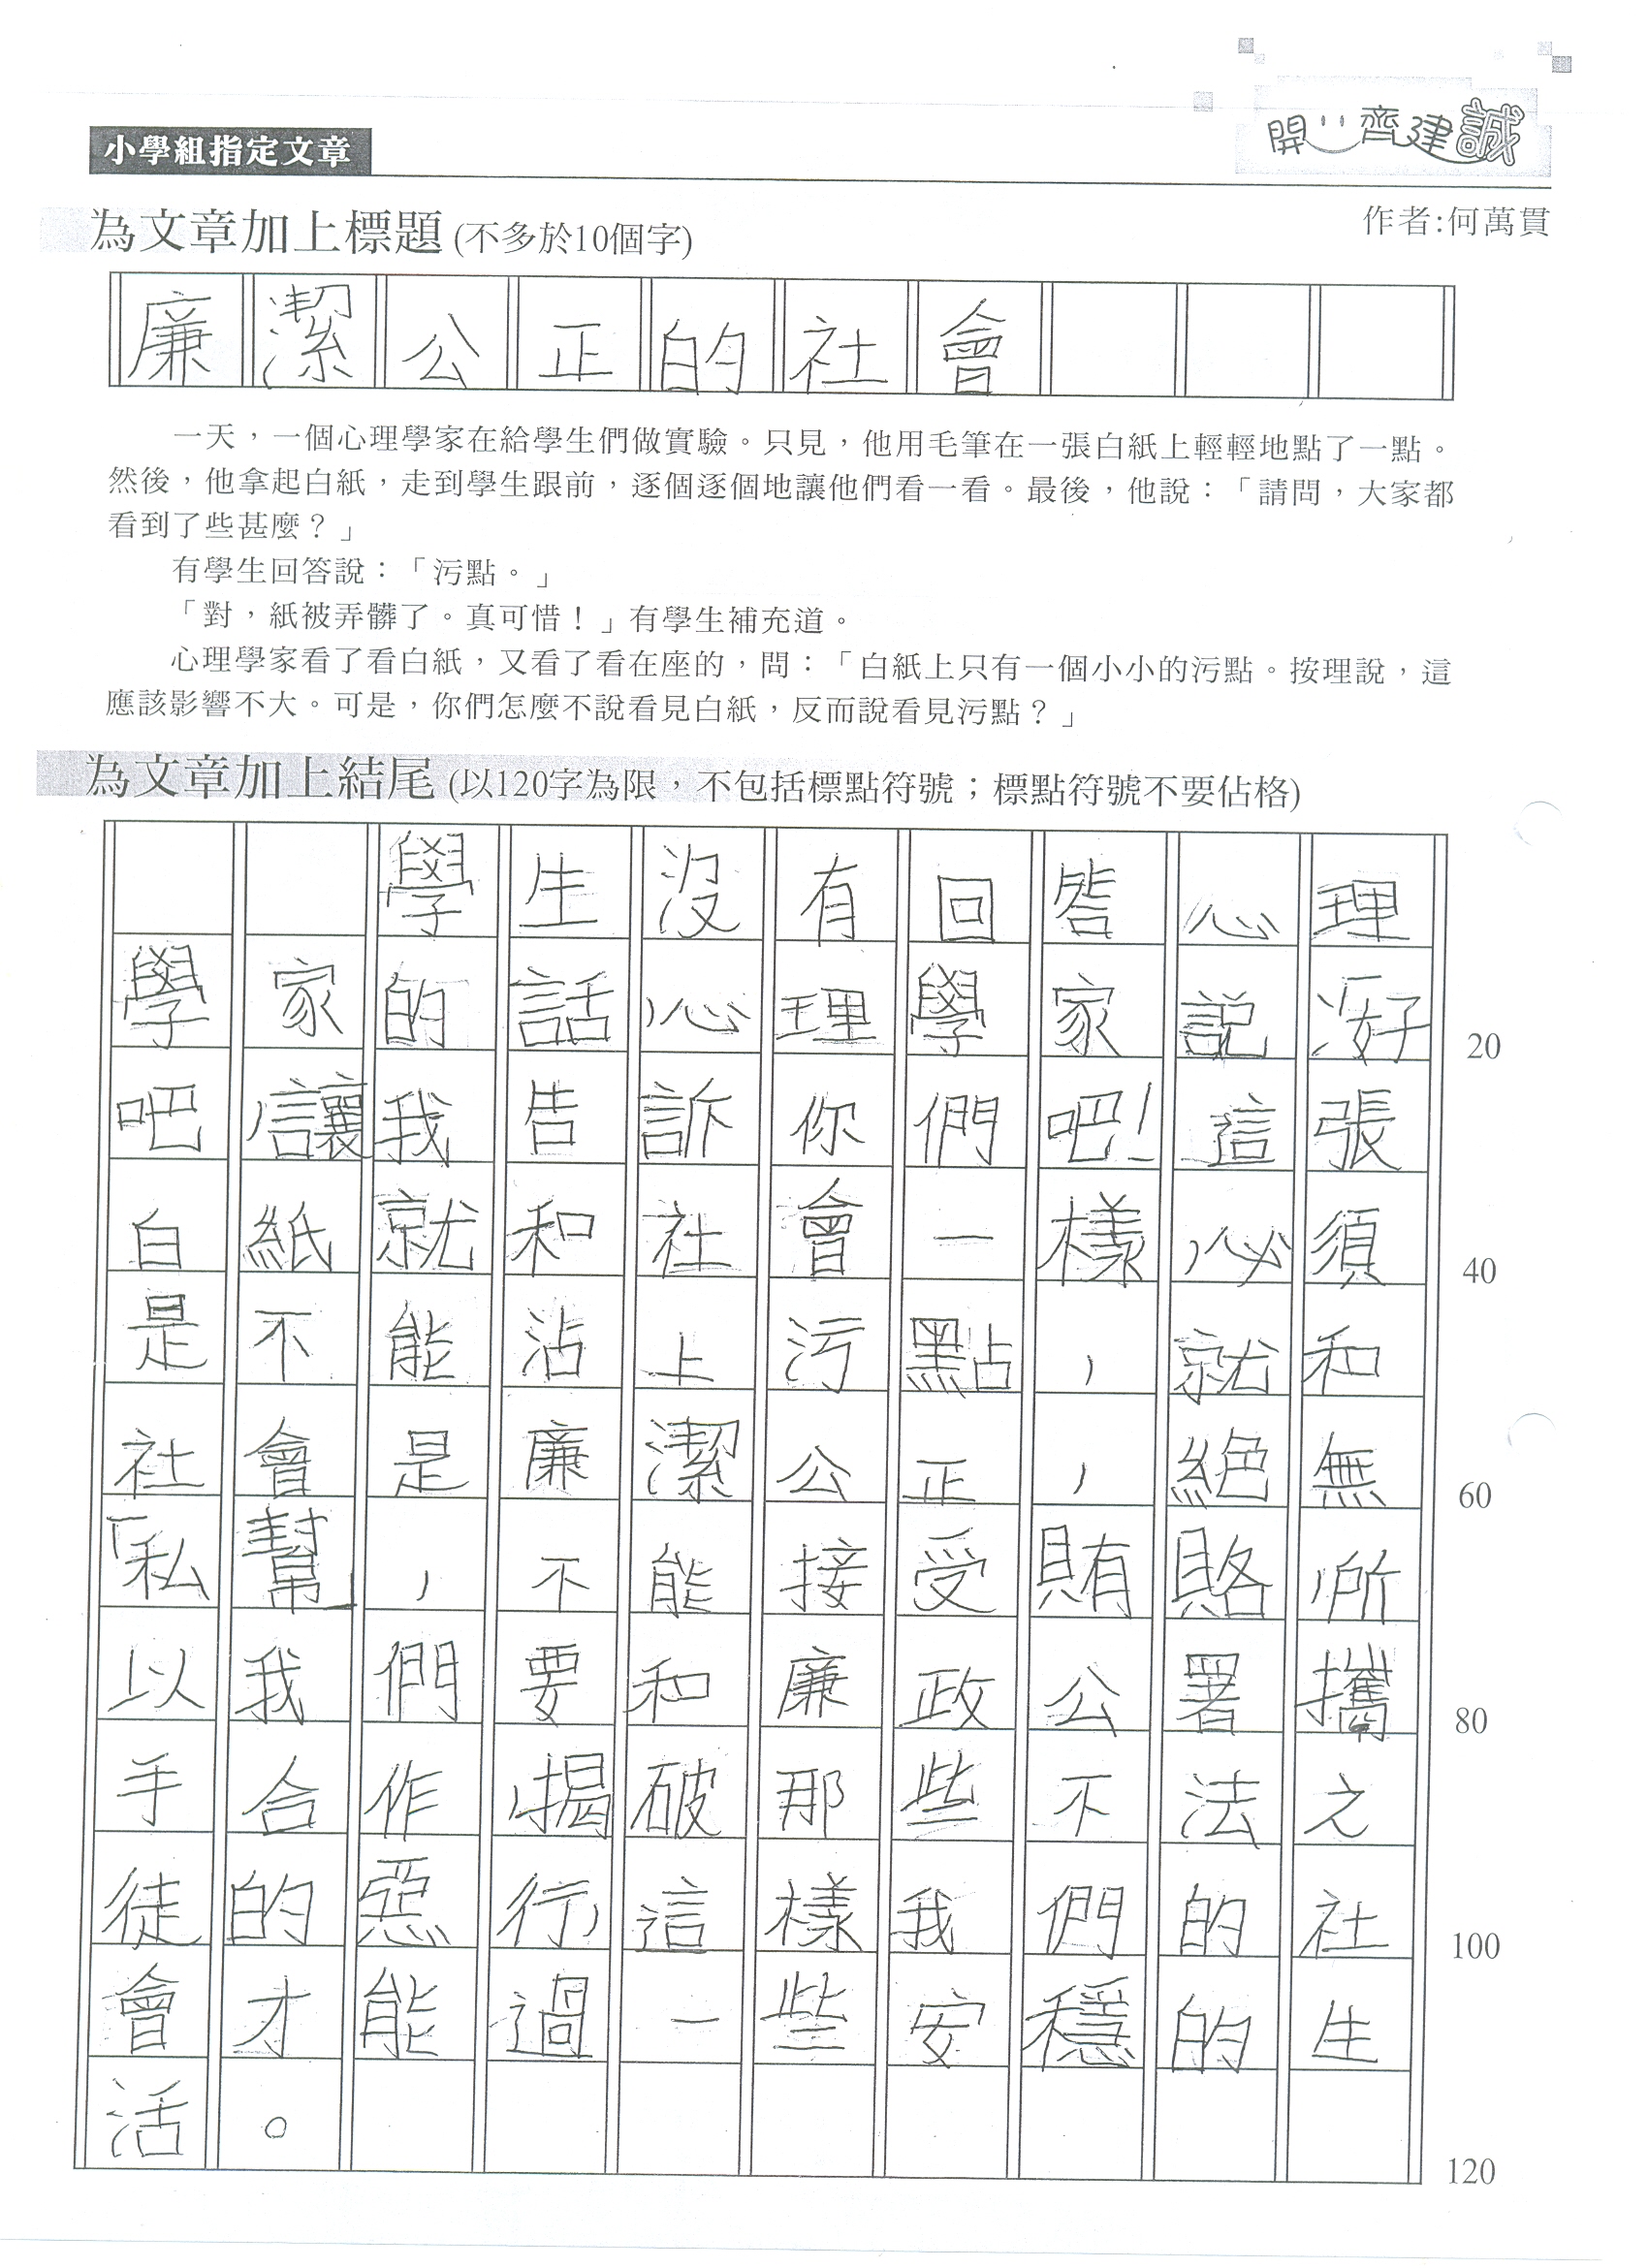 開心齊建誠
小學組指定文章
為文章加上標題 (不多於10個字)
作者:何萬貫
廉潔公正的社會
一天，一個心理學家在給學生們做實驗。只見，他用毛筆在一張白紙上輕輕地點了一點。
然後，他拿起白紙，走到學生跟前，逐個逐個地讓他們看一看。最後，他說：「請問，大家都
看到了些甚麼？」
有學生回答說：「污點。」
「對，紙被弄髒了。真可惜！」有學生補充道。
心理學家看了看白紙，又看了看在座的，問：「白紙上只有一個小小的污點。按理說，這
應該影響不大。可是，你們怎麼不說看見白紙，反而說看見污點？」
為文章加上結尾 (以120字為限，不包括標點符號；標點符號不要佔格)
學生沒有回答心理
學家的話，心理學家說：「好 20
吧，讓我告訴你們吧！這張
白紙就和社會一樣，必須 40
是不能沾上污點，就和
社會是廉潔公正，絕無 60
「私幫」，不能接受賄賂，所
以我們要和廉政公署攜 80
手合作，揭破那些不法之
徒的惡行，這樣我們的社 100
會才能過一些安穩的生
活。 120